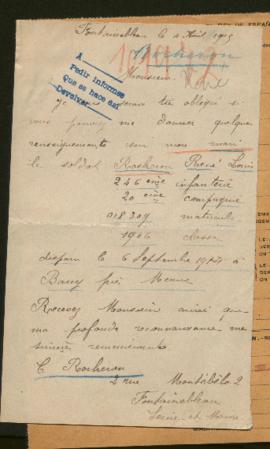 Fontainebleau le 4 Août 1915
Rocheron
Monsieur
René
A
Pedir informes
Que se hace así
Devolver
Je vous serai très obligé si
vous pouvez me donner quelque
renseignements sur mon mari
le soldat Rocheron René Louis
246 eme infanterie
20 eme compagnie
018309 matricule
1906 classe
disparu le 6 Septembre 1914 à
Barcy près Meaux
Recevez Monsieur ainsi que
ma profonde reconnaissance mes
sincère remerciements
C Rocheron
2 rue Montébélo 2
Fontainebleau
Seine et Marne